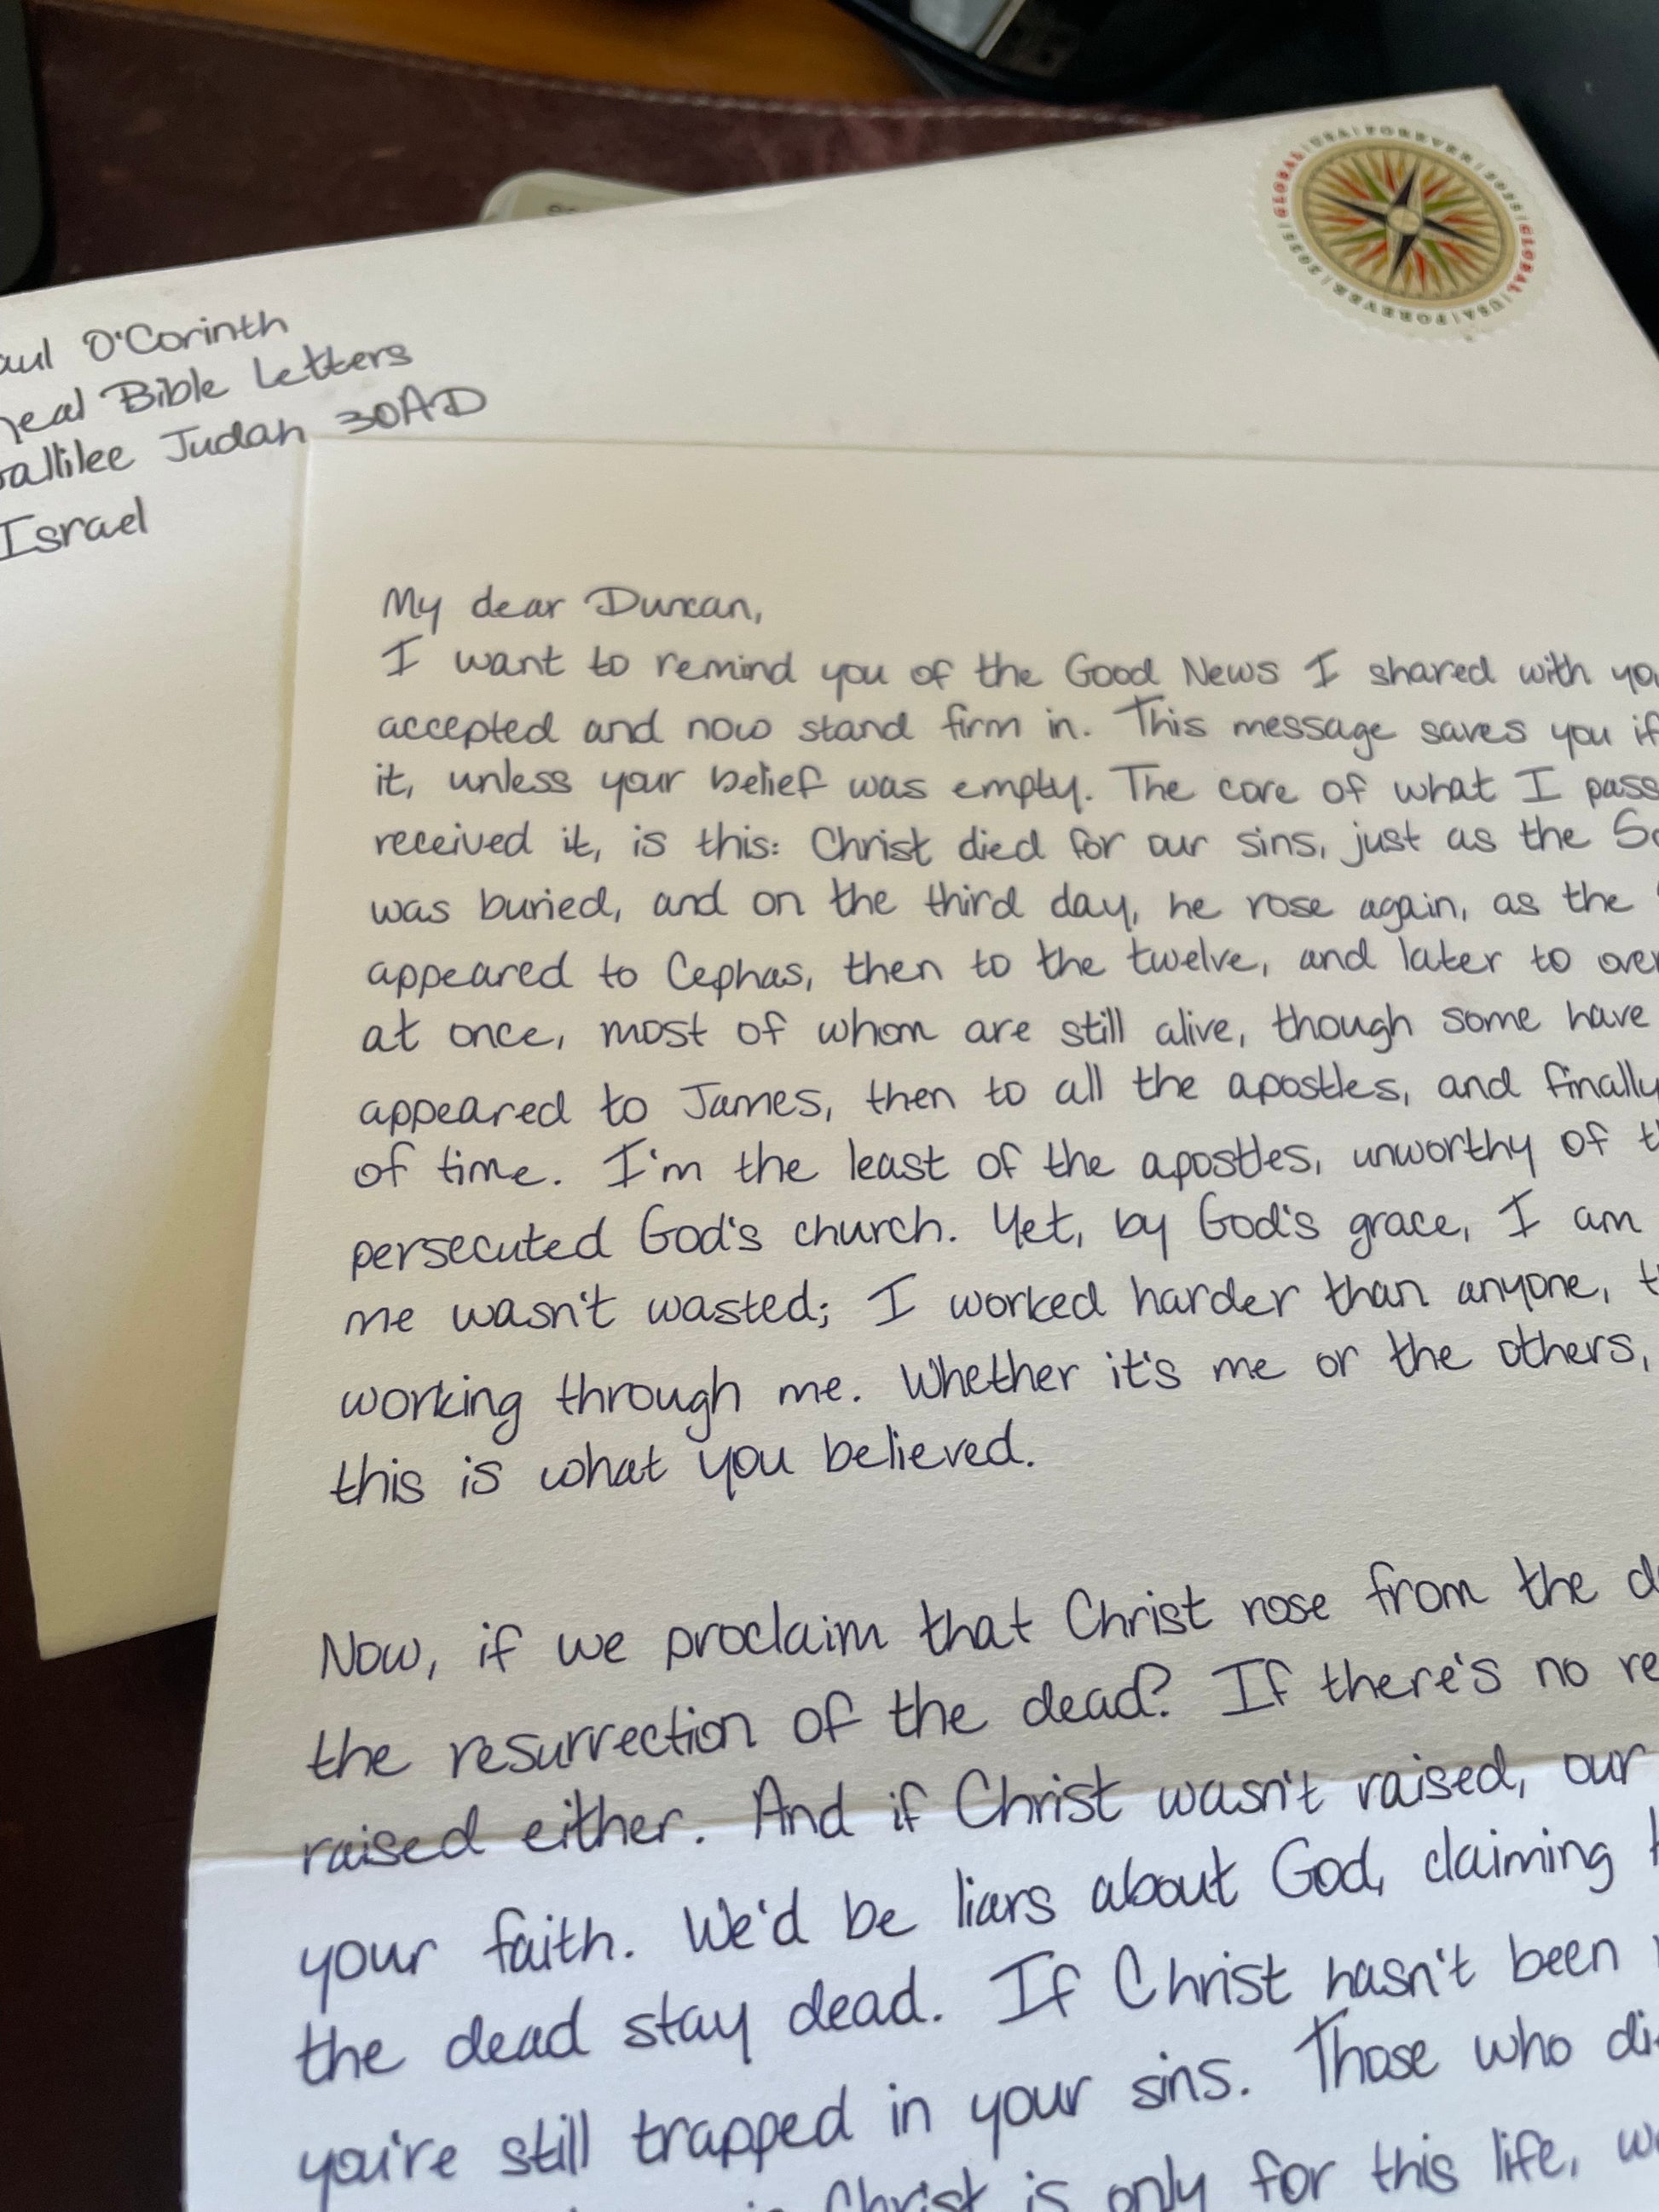 O'Corinth
Bible Letters
Judah 30AD
Israel
GLOBAL | USA | FOREVER | 2025 | GLOBAL | USA | FOREVER | 2025 |
My dear Duncan,
I want to remind you of the Good News I shared with
accepted and now stand firm in. This message saves you if
it, unless your belief was empty. The core of what I
received it, is this: Christ died for our sins, just as the
was buried, and on the third day, he rose again, as the
appeared to Cephas, then to the twelve, and later to
at once, most of whom are still alive, though some have
appeared to James, then to all the apostles, and finally
of time. I'm the least of the apostles, unworthy of
persecuted God's church. Yet, by God's grace, I am
me wasn't wasted; I worked harder than anyone,
working through me. Whether it's me or the others,
this is what you believed.
Now, if we proclaim that Christ rose from the
the resurrection of the dead? If there's no
raised either. And if Christ wasn't raised, our
your faith. We'd be liars about God, claiming
the dead stay dead. If Christ hasn't been
you're still trapped in your sins. Those who
Christ is only for this life,